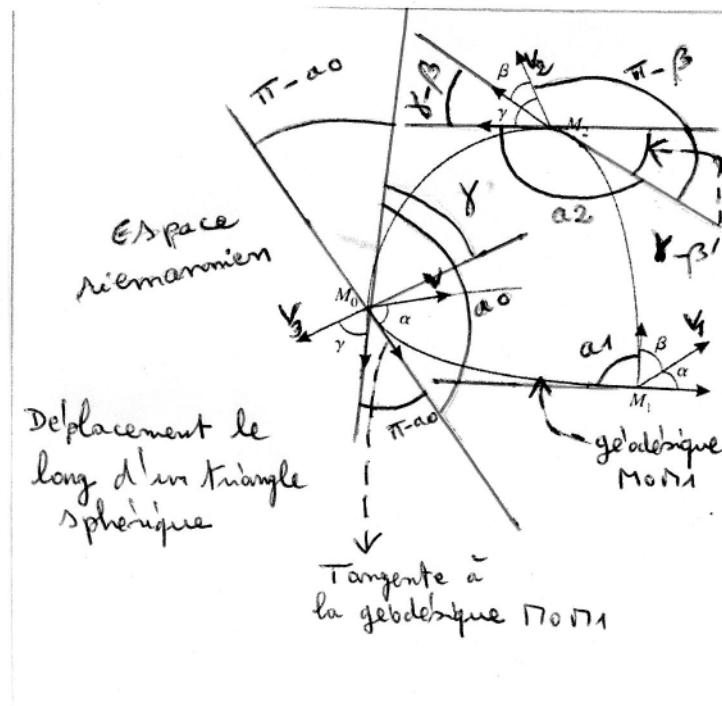 π-a0
γ-β
β
V2
π-β
γ
M2
a2
γ-β'
Espace
riemannien
γ
V
M0
α
a0
V3
γ
π-a0
a1
β
V1
α
M1
géodésique
M0M1
Déplacement le
long d'un triangle
sphérique
Tangente à
la géodésique M0M1